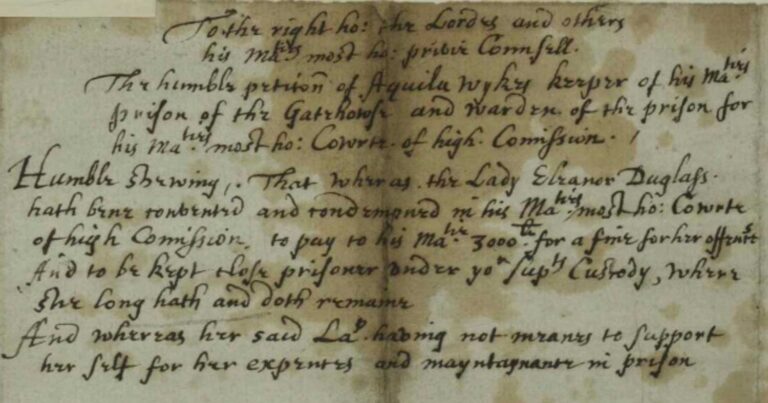 To the right ho: the Lordes and others
his Ma:ties most ho: privie Counsell.
The humble petition of Aquila Wykes keeper of his Ma:ties
prison of the Gatehowse and warden of the prison for
his Ma:ties most ho: Cowrte of high Comission.
Humble shewing, That whereas the Lady Eleanor Duglass.
hath bene convented and condempned in his Ma:ties most ho: Cowrte
of high Comission, to pay to his Ma:tie 3000li for a fine for her offences
And to be kept close prisoner under yor supts Custody, where
she long hath and doth remaine
And whereas her said Lap: having not meanes to support
her self for her expences and mayntaynance in prison